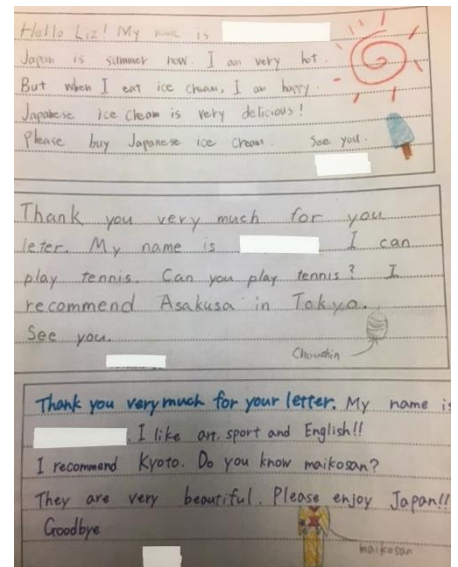 Hello Liz! My name is
Japan is summer now. I am very hot.
But when I eat ice cream, I am happy.
Japanese ice cream is very delicious!
Please buy Japanese ice cream. See you.
Thank you very much for you
leter. My name is I can
play tennis. Can you play tennis? I
recommend Asakusa in Tokyo.
See you.
Chouchin
Thank you very much for your letter. My name is
. I like art, sport and English!!
I recommend Kyoto. Do you know maikosan?
They are very beautiful. Please enjoy Japan!!
Goodbye
maikosan